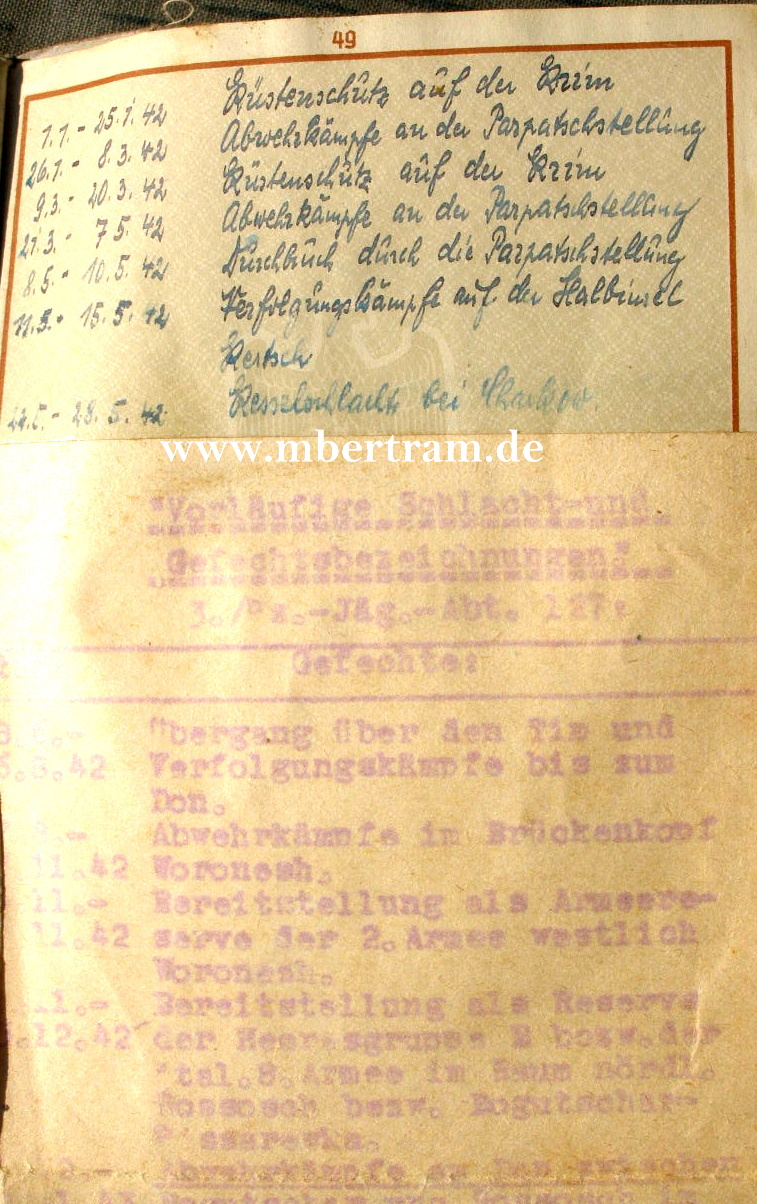 49
1.1. - 25.1.42 Küstenschutz auf der Krim
26.1. - 8.3.42 Abwehrkämpfe an der Parpatschstellung
9.3. - 20.3.42 Küstenschutz auf der Krim
21.3. - 7.5.42 Abwehrkämpfe an der Parpatschstellung
8.5. - 10.5.42 Durchbruch durch die Parpatschstellung
11.5. - 15.5.42 Verfolgungskämpfe auf der Halbinsel
Kertsch
28.5.42 Kesselschlacht bei Charkow.
www.mbertram.de
"Vorläufige Schlacht-und
Gefechtsbezeichnungen"
3./Pz.-Jäg.-Abt. 127:
Gefechte:
Übergang über den Tim und
.42 Verfolgungskämpfe bis zum
Don.
Abwehrkämpfe im Brückenkopf
11.42 Woronesh.
11.- Bereitstellung als Armeere-
11.42 serve der 2.Armee westlich
Woronesh.
Bereitstellung als Reserve
.12.42 der Heeresgruppe B bezw.der
ital.8.Armee im Raum nördl.
Rossosch bezw. Bogutschar-
Abwehrkämpfe am Don zwischen